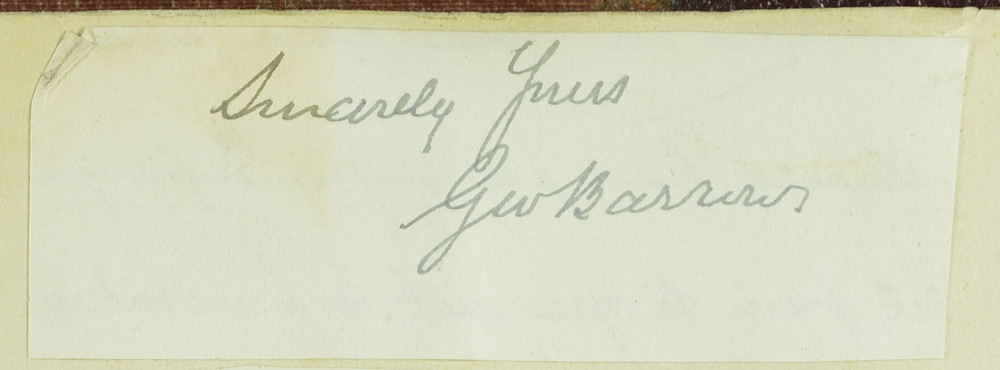 Sincerely Yours
Geo Barrows